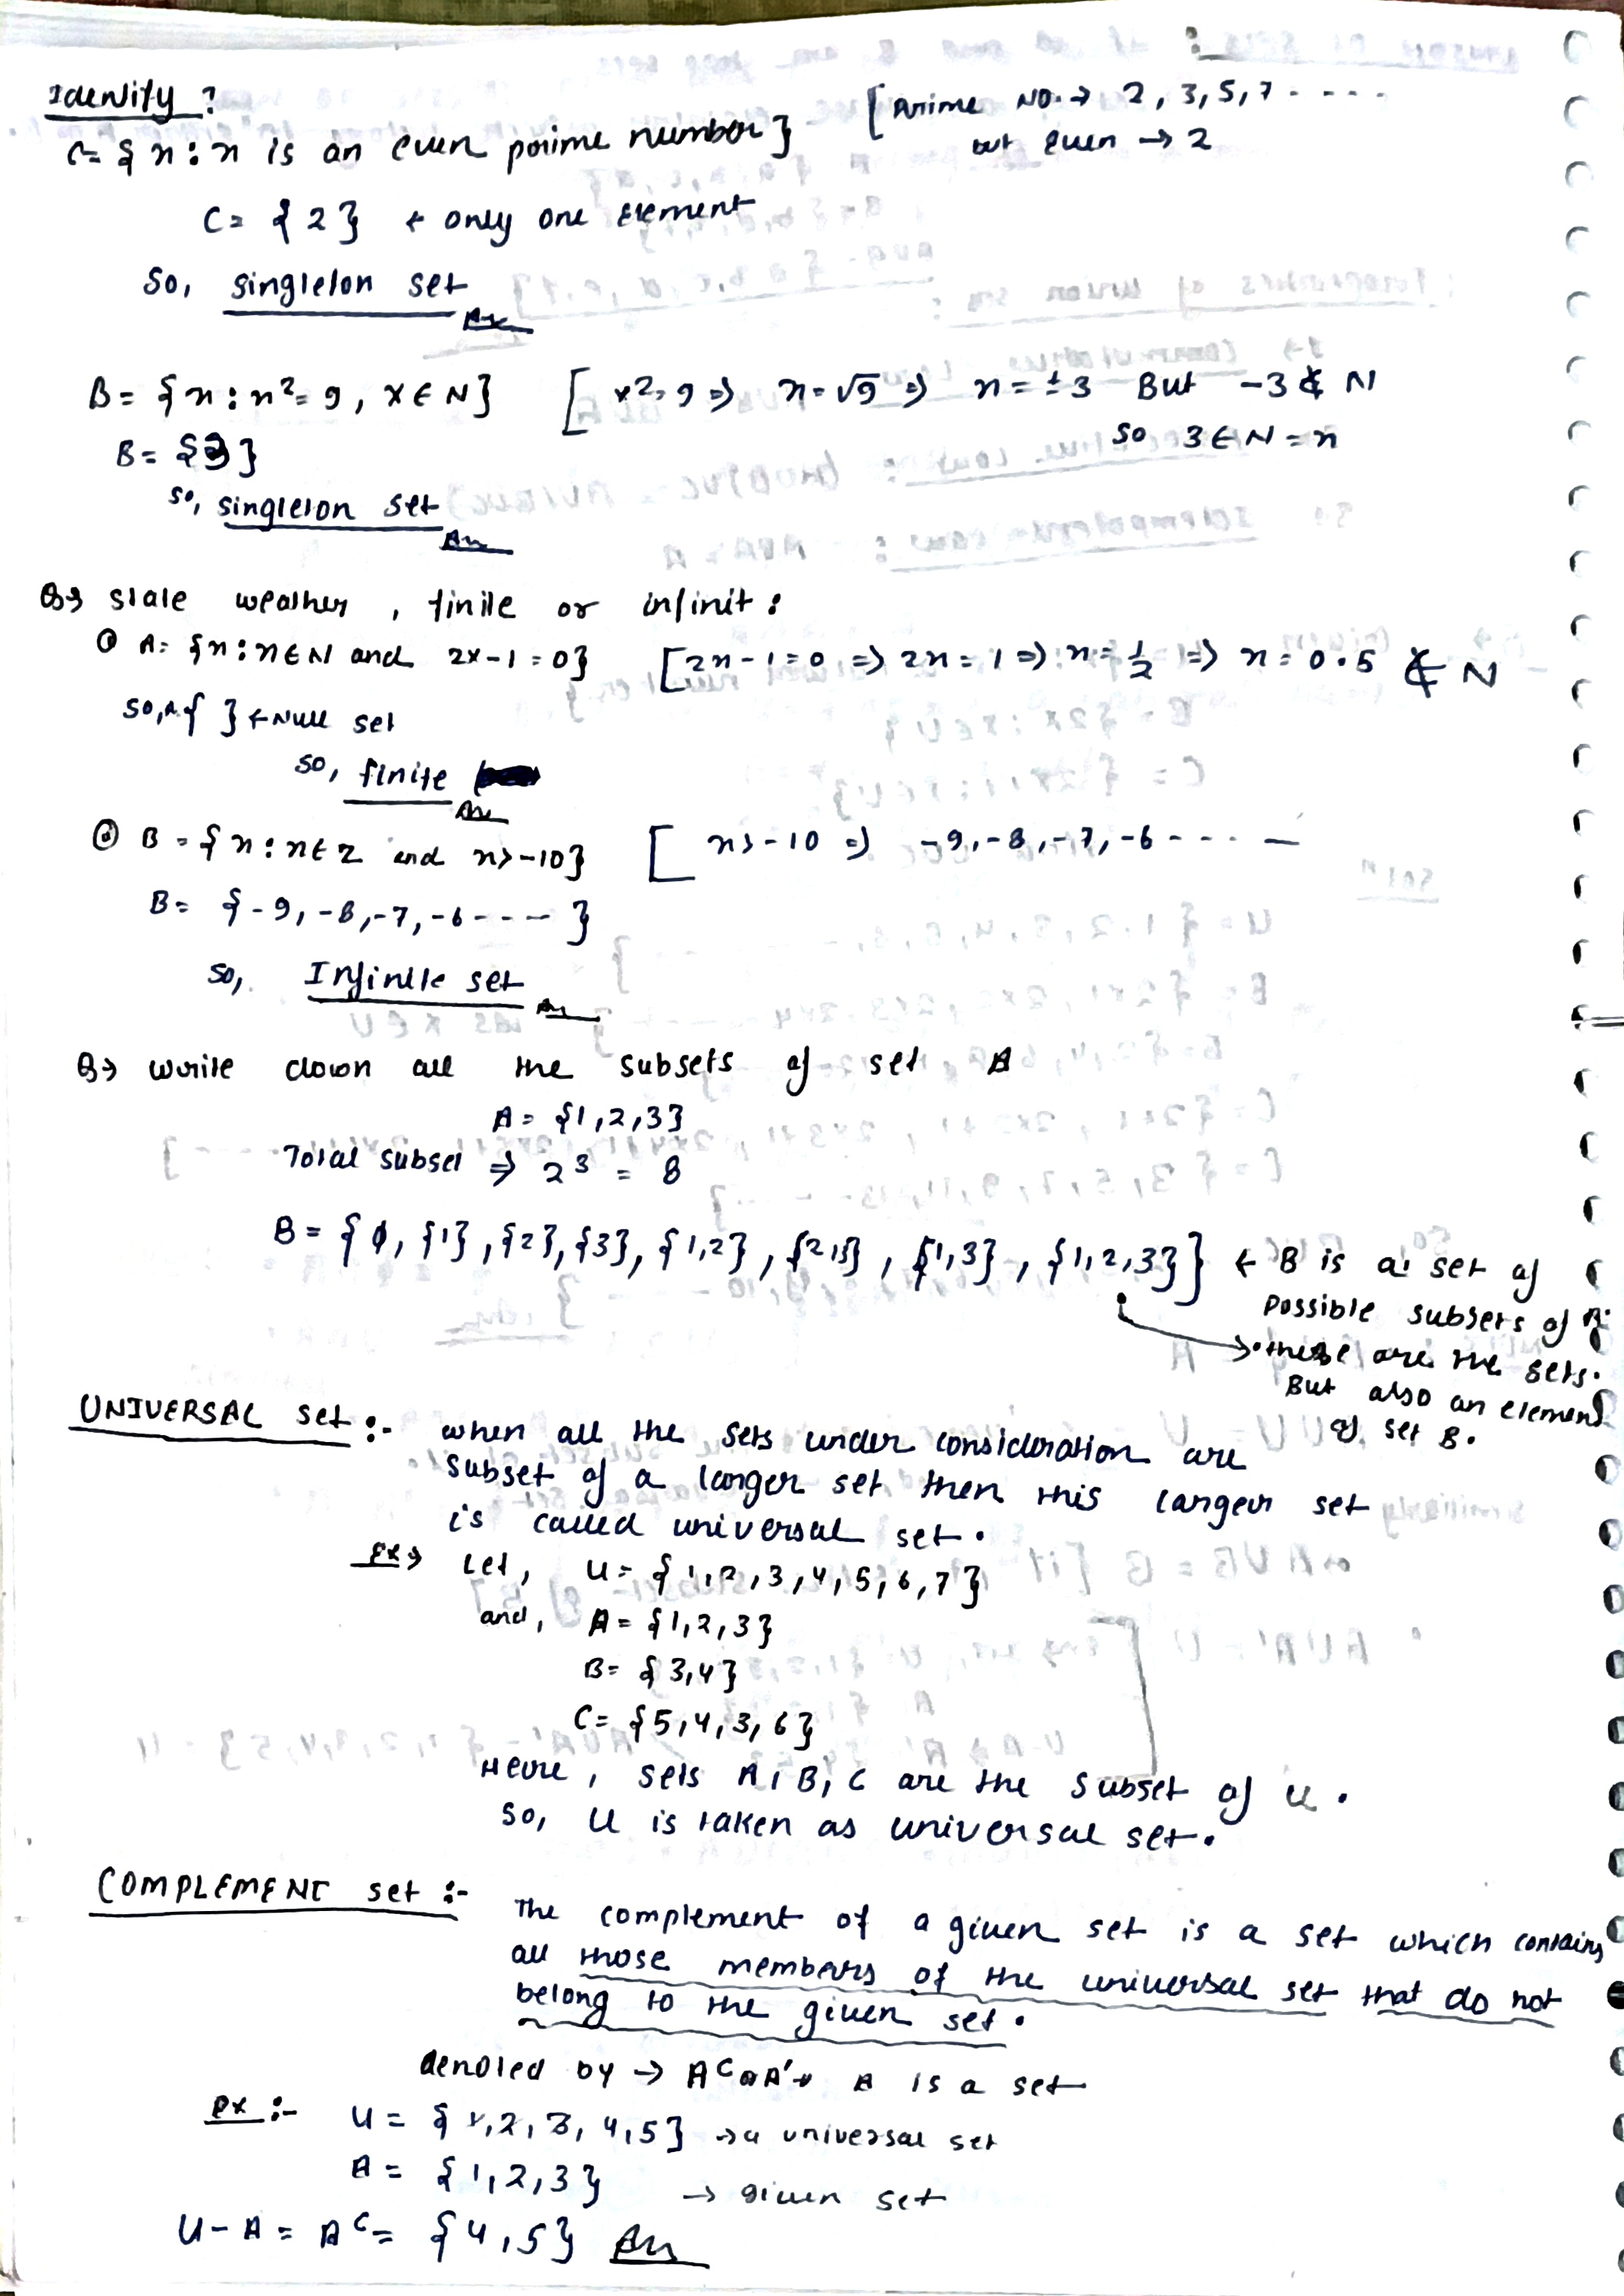 Identify ?
C = {x : x is an even prime number} [Prime No. → 2, 3, 5, 7 - - - -
but even → 2
C = {2} ← only one element
So, singleton set
Ans
B = {x : x² = 9, x ∈ N} [x² = 9 ⇒ x = √9 ⇒ x = ±3 But -3 ∉ N
So 3 ∈ N = x
B = {3}
So, singleton set
Ans
Q→ state weather, finite or infinit :
① A = {x : x ∈ N and 2x-1 = 0} [2x-1 = 0 ⇒ 2x = 1 ⇒ x = 1/2 ⇒ x = 0.5 ∉ N
So, A { } ← Null set
So, finite
Ans
② B = {x : x ∈ Z and x > -10} [x > -10 ⇒ -9, -8, -7, -6 - - - - —
B = {-9, -8, -7, -6 - - - —}
So, Infinite set
Ans
Q→ write down all the subsets of set A
A = {1,2,3}
Total subset ⇒ 2³ = 8
B = {ϕ, {1}, {2}, {3}, {1,2}, {2,3}, {1,3}, {1,2,3}} ← B is a set of
possible subsets of A.
→ these are the sets.
But also an element
of set B.
UNIVERSAL set :- when all the sets under consideration are
subset of a larger set then this larger set
is called universal set.
Ex→ Let, U = {1,2,3,4,5,6,7}
and, A = {1,2,3}
B = {3,4}
C = {5,4,3,6}
Here, sets A, B, C are the subset of U.
So, U is taken as universal set.
COMPLEMENT set :- The complement of a given set is a set which contains
all those members of the universal set that do not
belong to the given set.
denoted by → Aᶜ or A' → A is a set
Ex :- U = {1,2,3,4,5} → a universal set
A = {1,2,3} → given set
U - A = Aᶜ = {4,5} Ans